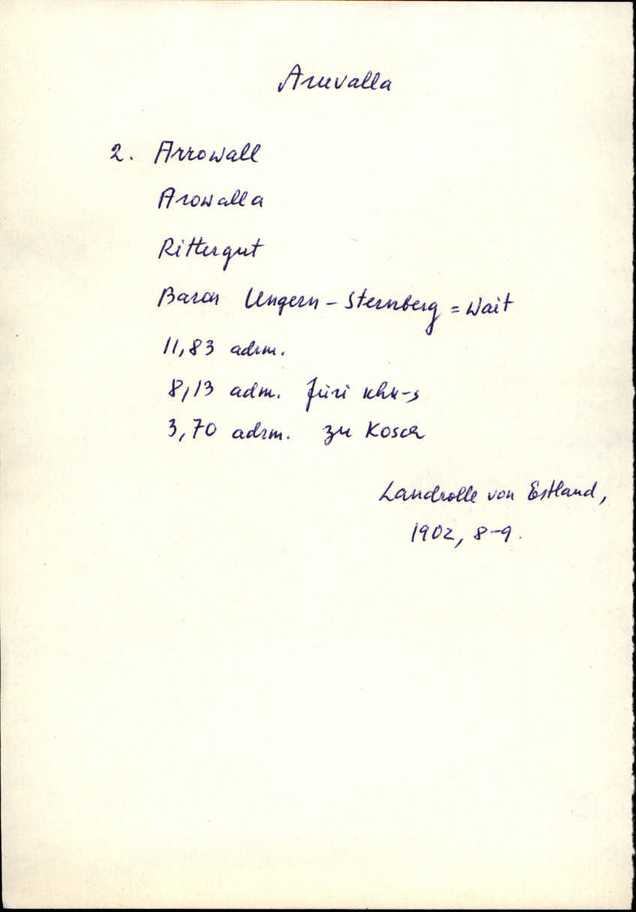 Aruvalla
2. Arrowall
Arowalla
Rittergut
Baron Ungern-Sternberg = Wait
11,83 adrm.
8,13 adm. Jüri khk-s
3,70 adrm. zu Kosch
Landrolle von Estland,
1902, 8-9.